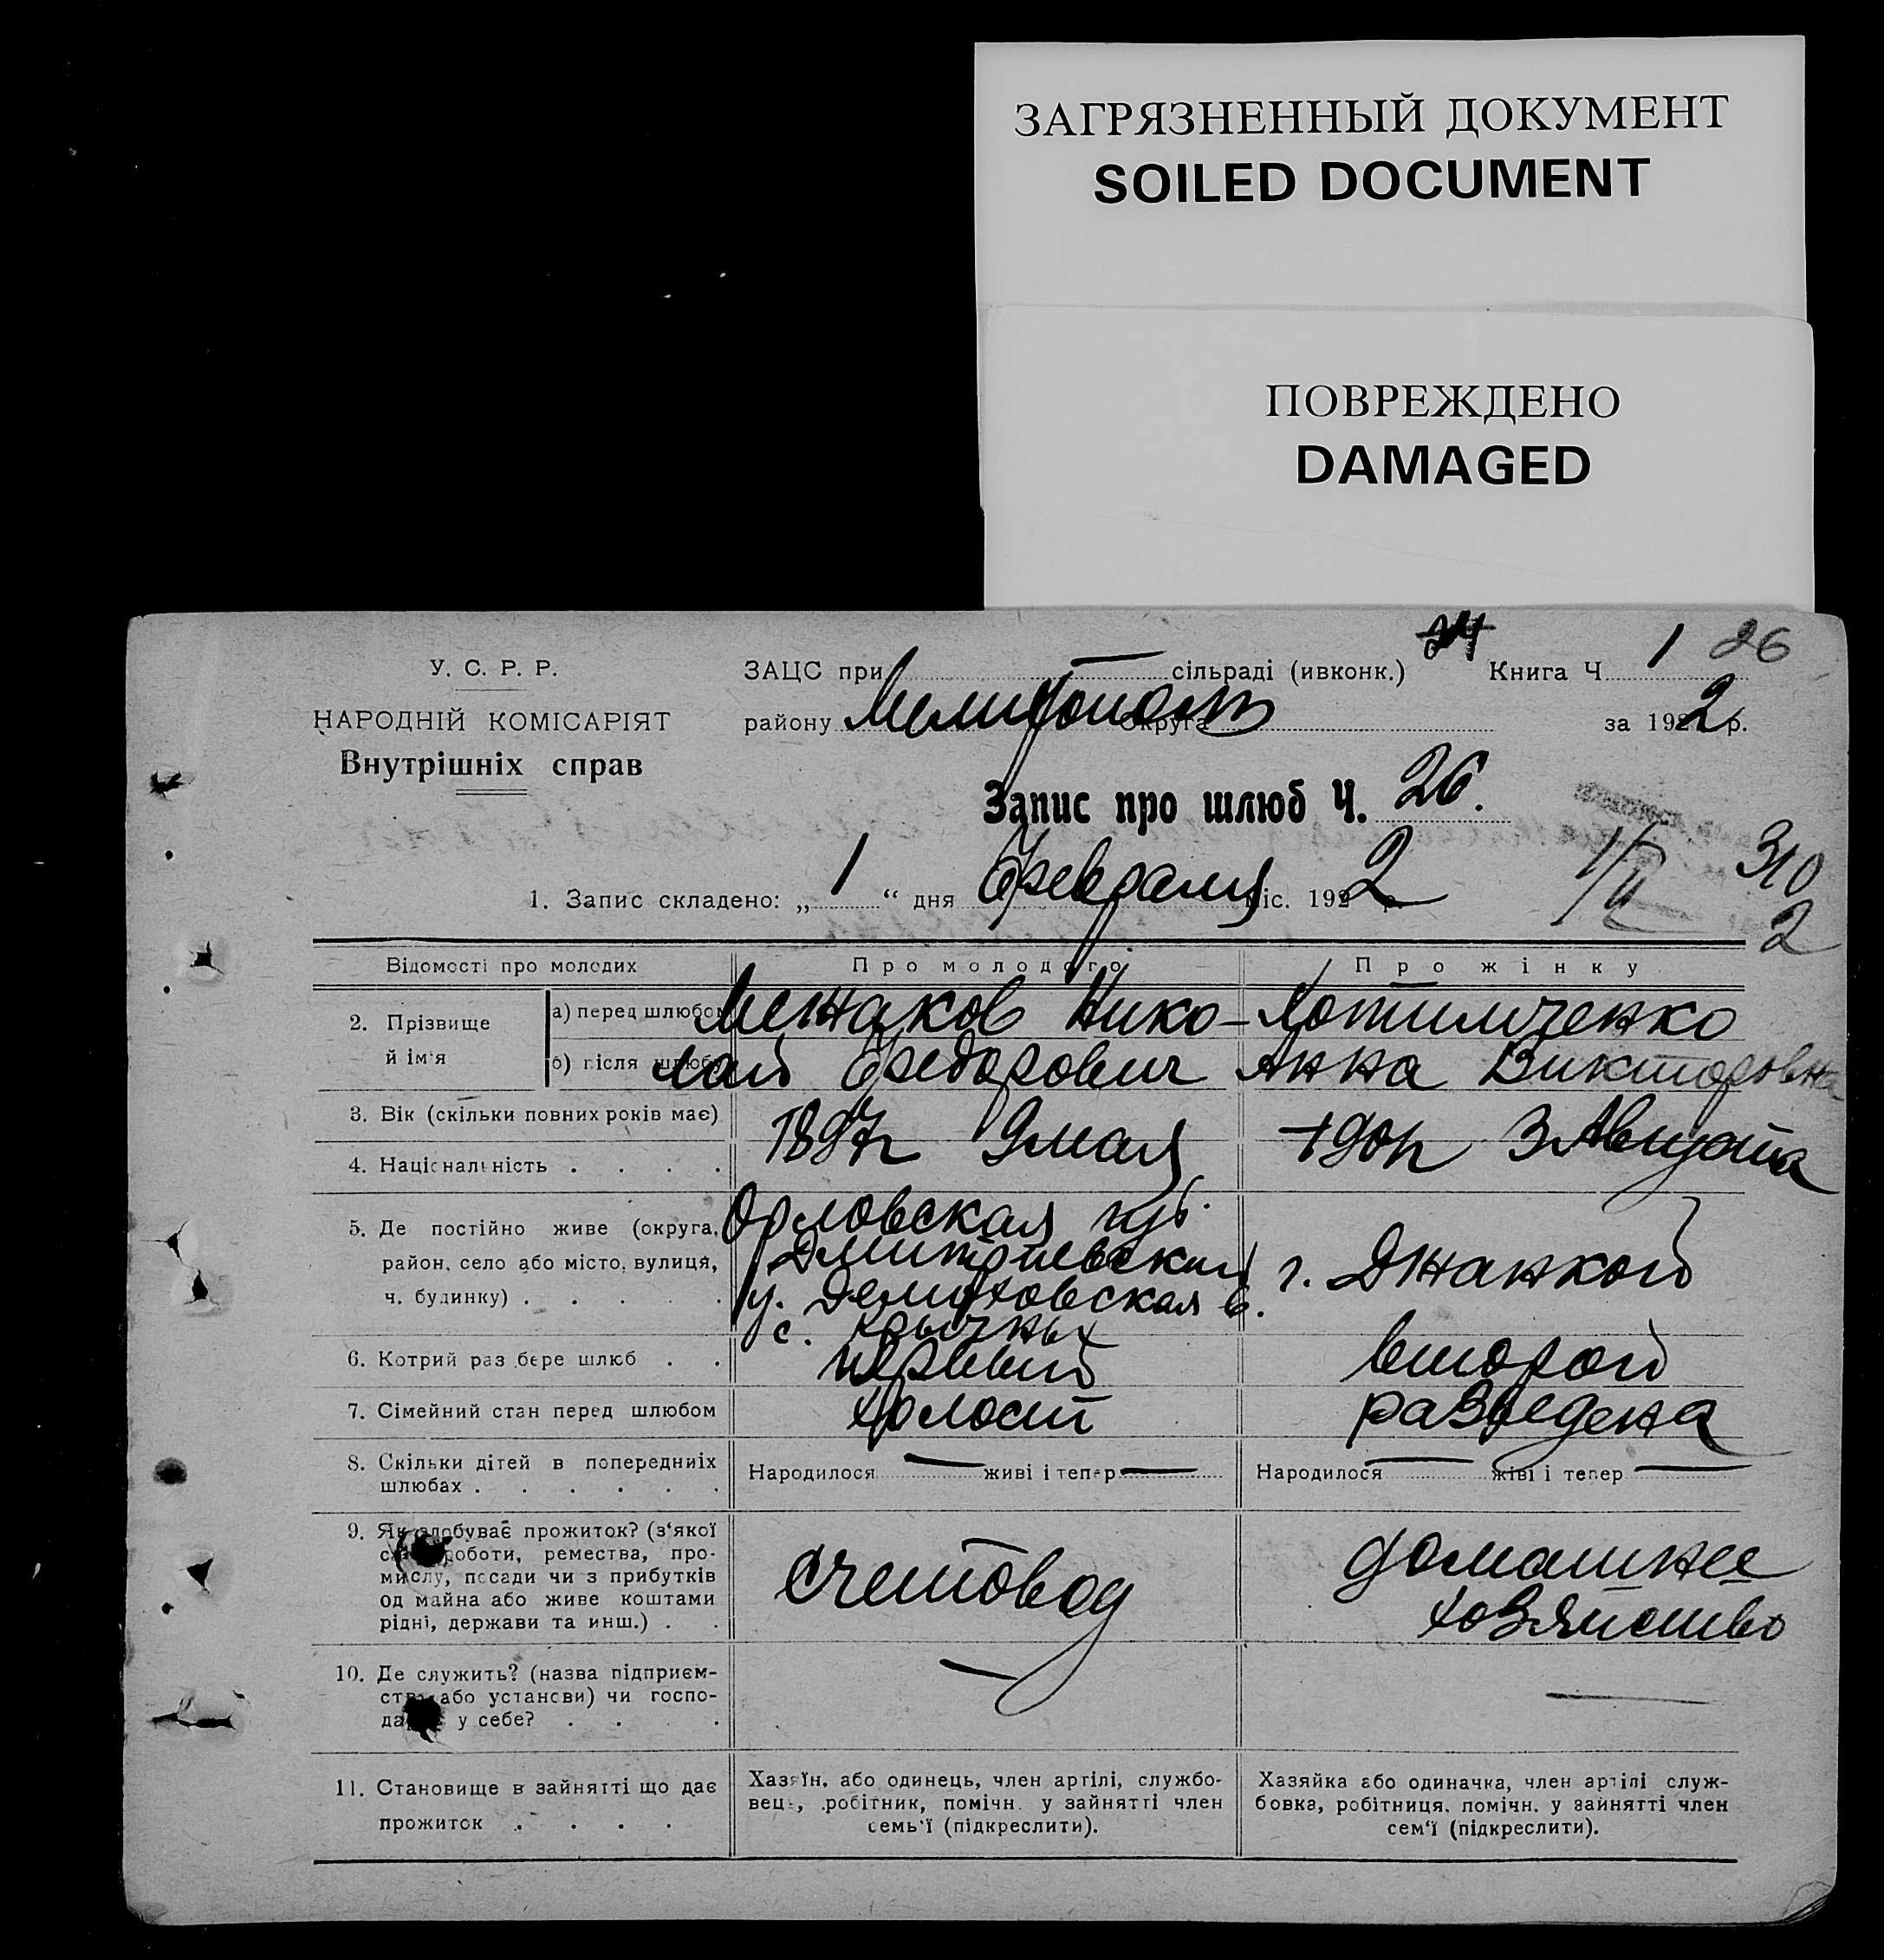 ЗАГРЯЗНЕННЫЙ ДОКУМЕНТ
SOILED DOCUMENT
ПОВРЕЖДЕНО
DAMAGED
24
1 26
У. С. Р. Р.
ЗАЦС при — сільраді (ивконк.) Книга Ч.
НАРОДНІЙ КОМІСАРІЯТ
Внутрішніх справ
району Мелитополь Округа за 1922 р.
Запис про шлюб Ч. 26.
1. Запис складено: „ 1 “ дня Февраля міс. 1922 р.
1/II 310
2
Відомості про молодих Про молодого Про жінку
2. Прізвище й ім'я
а) перед шлюбом
б) після шлюбу
Менжаков Нико- Хотимченко
лай Федорович Анна Викторовна
3. Вік (скільки повних років має)
4. Національність . . . .
1897г 9 мая 190 3 Августа
5. Де постійно живе (округа,
район, село або місто, вулиця,
ч. будинку) . . . . .
Орловская губ.
Дмитриевский
у. в.
с.
г. Джанкой
6. Котрий раз бере шлюб . . первый второй
7. Сімейний стан перед шлюбом холост разведена
8. Скільки дітей в попередниіх
шлюбах . . . . . .
Народилося — живі і тепер — Народилося — живі і тепер —
9. Як здобуває прожиток? (з'якої
роботи, ремества, про-
мислу, посади чи з прибутків
од майна або живе коштами
рідні, держави та инш.) . .
счетовод
домашнее
хозяйство
10. Де служить? (назва підприєм-
ства або установи) чи госпо-
у себе? . . .
— —
11. Становище в зайнятті що дає
прожиток . . . .
Хазяїн, або одинець, член артілі, службо-
вець, робітник, помічн. у зайнятті член
семь'ї (підкреслити).
Хазяйка або одиначка, член артілі служ-
бовка, робітниця, помічн. у зайнятті член
сем'ї (підкреслити).